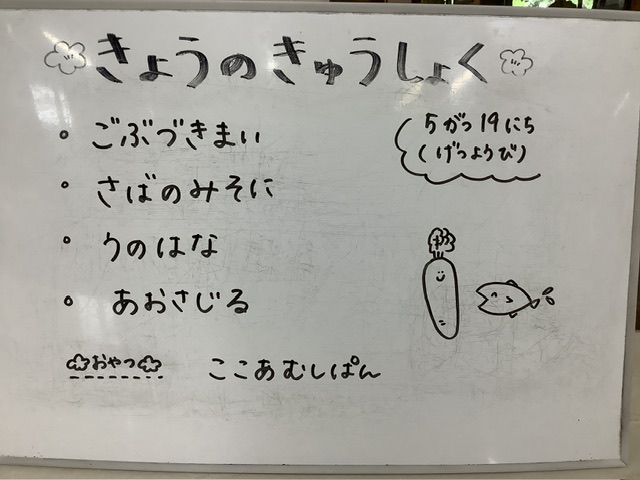 きょうのきゅうしょく
5がつ19にち
(げつようび)
・ごぶづきまい
・さばのみそに
・うのはな
・あおさじる
おやつ ここあむしぱん